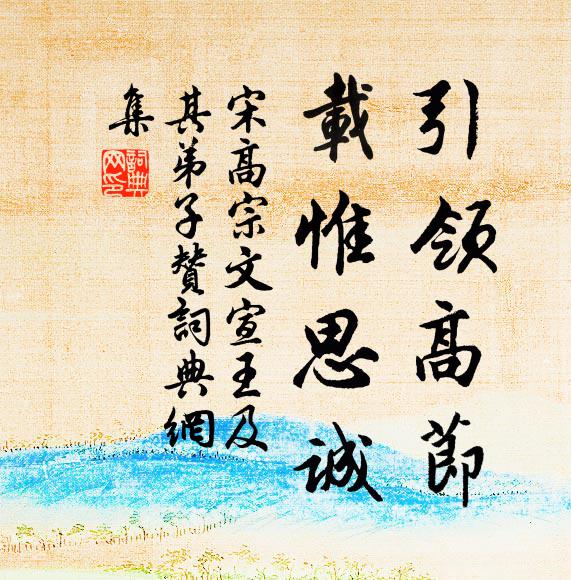 引領高節
載惟思誠
宋高宗文宣王及
其弟子贊詞典網
集
詞典
网印